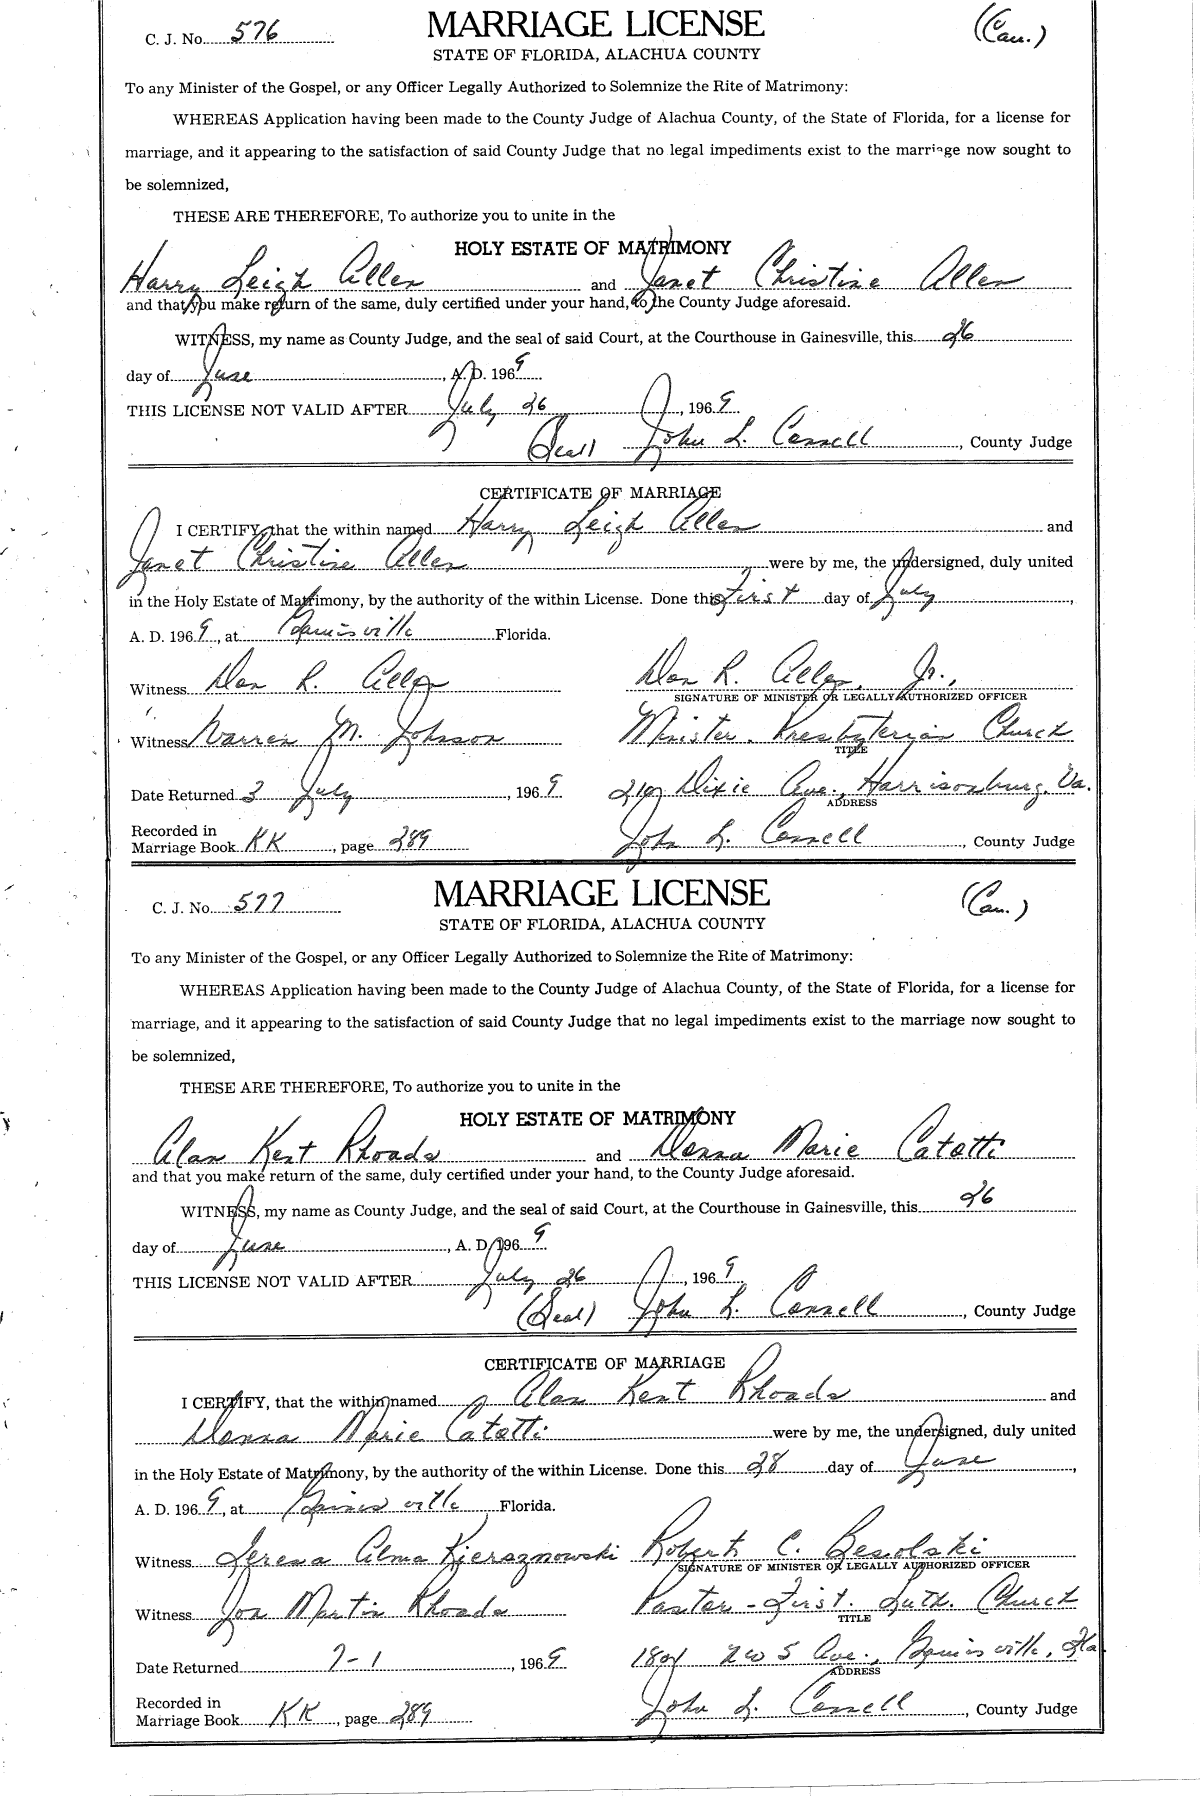 C. J. No. 576
MARRIAGE LICENSE
(Cau.)
STATE OF FLORIDA, ALACHUA COUNTY
To any Minister of the Gospel, or any Officer Legally Authorized to Solemnize the Rite of Matrimony:
WHEREAS Application having been made to the County Judge of Alachua County, of the State of Florida, for a license for
marriage, and it appearing to the satisfaction of said County Judge that no legal impediments exist to the marriage now sought to
be solemnized,
THESE ARE THEREFORE, To authorize you to unite in the
HOLY ESTATE OF MATRIMONY
Harry Leigh Allen and Janet Christine Allen
and that you make return of the same, duly certified under your hand, to the County Judge aforesaid.
WITNESS, my name as County Judge, and the seal of said Court, at the Courthouse in Gainesville, this 26
day of June, A. D. 1969
THIS LICENSE NOT VALID AFTER July 26, 1969
(Seal) John L. Connell, County Judge
CERTIFICATE OF MARRIAGE
I CERTIFY, that the within named Harry Leigh Allen and
Janet Christine Allen were by me, the undersigned, duly united
in the Holy Estate of Matrimony, by the authority of the within License. Done this First day of July,
A. D. 1969, at Gainesville Florida.
Witness Don R. Allen Don R. Allen, Jr.,
SIGNATURE OF MINISTER OR LEGALLY AUTHORIZED OFFICER
Witness Warren M. Johnson Minister. Presbyterian Church
TITLE
Date Returned 3 July, 1969 Dixie Ave., Harrisonburg, Va.
ADDRESS
Recorded in
Marriage Book KK, page 289 John L. Connell, County Judge
C. J. No. 577
MARRIAGE LICENSE
(Cau.)
STATE OF FLORIDA, ALACHUA COUNTY
To any Minister of the Gospel, or any Officer Legally Authorized to Solemnize the Rite of Matrimony:
WHEREAS Application having been made to the County Judge of Alachua County, of the State of Florida, for a license for
marriage, and it appearing to the satisfaction of said County Judge that no legal impediments exist to the marriage now sought to
be solemnized,
THESE ARE THEREFORE, To authorize you to unite in the
HOLY ESTATE OF MATRIMONY
Alan Kent Rhoads and Donna Marie Catotti
and that you make return of the same, duly certified under your hand, to the County Judge aforesaid.
WITNESS, my name as County Judge, and the seal of said Court, at the Courthouse in Gainesville, this 26
day of June, A. D. 1969
THIS LICENSE NOT VALID AFTER July 26, 1969
(Seal) John L. Connell, County Judge
CERTIFICATE OF MARRIAGE
I CERTIFY, that the within named Alan Kent Rhoads and
Donna Marie Catotti were by me, the undersigned, duly united
in the Holy Estate of Matrimony, by the authority of the within License. Done this 28 day of June,
A. D. 1969, at Gainesville Florida.
Witness Teresa Alma Kiersznowski Robert C. Besolski
SIGNATURE OF MINISTER OR LEGALLY AUTHORIZED OFFICER
Witness Jon Martin Rhoads Pastor - First. Luth. Church
TITLE
Date Returned 7-1, 1969 1801 NW 5 Ave., Gainesville, Fla.
ADDRESS
Recorded in
Marriage Book KK, page 289 John L. Connell, County Judge